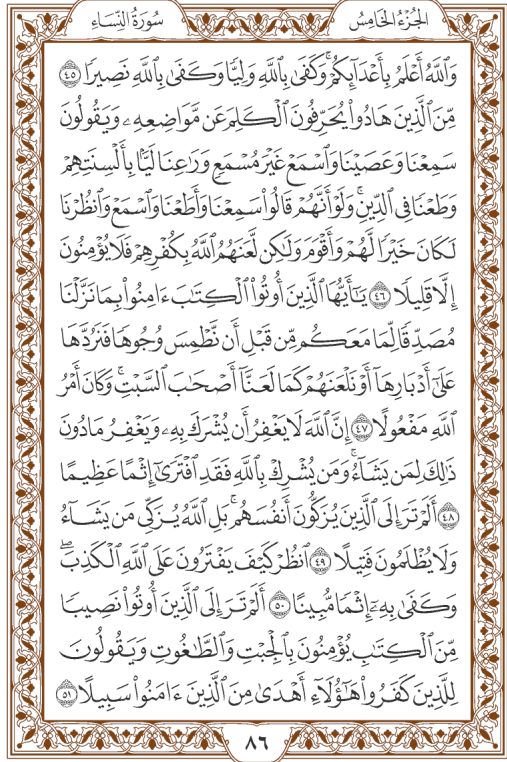 الجُزْءُ الخَامِسُ
سُورَةُ النِّسَاءِ
وَٱللَّهُ أَعْلَمُ بِأَعْدَآئِكُمْۚ وَكَفَىٰ بِٱللَّهِ وَلِيّٗا وَكَفَىٰ بِٱللَّهِ نَصِيرٗا ٤٥
مِّنَ ٱلَّذِينَ هَادُواْ يُحَرِّفُونَ ٱلۡكَلِمَ عَن مَّوَاضِعِهِۦ وَيَقُولُونَ
سَمِعۡنَا وَعَصَيۡنَا وَٱسۡمَعۡ غَيۡرَ مُسۡمَعٖ وَرَٰعِنَا لَيَّۢا بِأَلۡسِنَتِهِمۡ
وَطَعۡنٗا فِي ٱلدِّينِۚ وَلَوۡ أَنَّهُمۡ قَالُواْ سَمِعۡنَا وَأَطَعۡنَا وَٱسۡمَعۡ وَٱنظُرۡنَا
لَكَانَ خَيۡرٗا لَّهُمۡ وَأَقۡوَمَ وَلَٰكِن لَّعَنَهُمُ ٱللَّهُ بِكُفۡرِهِمۡ فَلَا يُؤۡمِنُونَ
إِلَّا قَلِيلٗا ٤٦ يَٰٓأَيُّهَا ٱلَّذِينَ أُوتُواْ ٱلۡكِتَٰبَ ءَامِنُواْ بِمَا نَزَّلۡنَا
مُصَدِّقٗا لِّمَا مَعَكُم مِّن قَبۡلِ أَن نَّطۡمِسَ وُجُوهٗا فَنَرُدَّهَا
عَلَىٰٓ أَدۡبَارِهَآ أَوۡ نَلۡعَنَهُمۡ كَمَا لَعَنَّآ أَصۡحَٰبَ ٱلسَّبۡتِۚ وَكَانَ أَمۡرُ
ٱللَّهِ مَفۡعُولًا ٤٧ إِنَّ ٱللَّهَ لَا يَغۡفِرُ أَن يُشۡرَكَ بِهِۦ وَيَغۡفِرُ مَا دُونَ
ذَٰلِكَ لِمَن يَشَآءُۚ وَمَن يُشۡرِكۡ بِٱللَّهِ فَقَدِ ٱفۡتَرَىٰٓ إِثۡمًا عَظِيمًا
٤٨ أَلَمۡ تَرَ إِلَى ٱلَّذِينَ يُزَكُّونَ أَنفُسَهُمۚ بَلِ ٱللَّهُ يُزَكِّي مَن يَشَآءُ
وَلَا يُظۡلَمُونَ فَتِيلًا ٤٩ ٱنظُرۡ كَيۡفَ يَفۡتَرُونَ عَلَى ٱللَّهِ ٱلۡكَذِبَۖ
وَكَفَىٰ بِهِۦٓ إِثۡمٗا مُّبِينًا ٥٠ أَلَمۡ تَرَ إِلَى ٱلَّذِينَ أُوتُواْ نَصِيبٗا
مِّنَ ٱلۡكِتَٰبِ يُؤۡمِنُونَ بِٱلۡجِبۡتِ وَٱلطَّٰغُوتِ وَيَقُولُونَ
لِلَّذِينَ كَفَرُواْ هَٰٓؤُلَآءِ أَهۡدَىٰ مِنَ ٱلَّذِينَ ءَامَنُواْ سَبِيلًا ٥١
٨٦